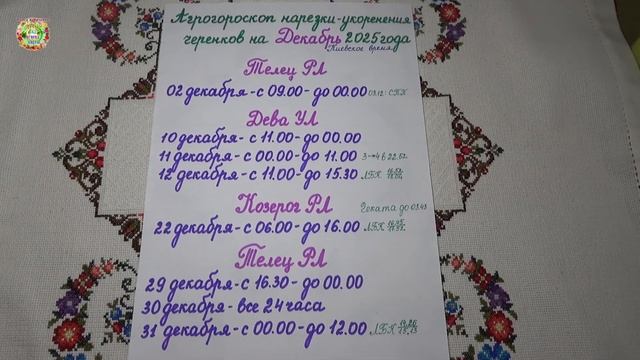 Агрогороскоп нарезки-укоренения
черенков на Декабрь 2025 года
Киевское время
Телец РЛ
02 декабря - с 09.00 - до 00.00
Дева УЛ
10 декабря - с 11.00 - до 00.00
11 декабря - с 00.00 - до 11.00
12 декабря - с 11.00 - до 15.30 ЛБК
Козерог РЛ
Геката до 03.43
22 декабря - с 06.00 - до 16.00 ЛБК
Телец РЛ
29 декабря - с 16.30 - до 00.00
30 декабря - все 24 часа
31 декабря - с 00.00 - до 12.00 ЛБК